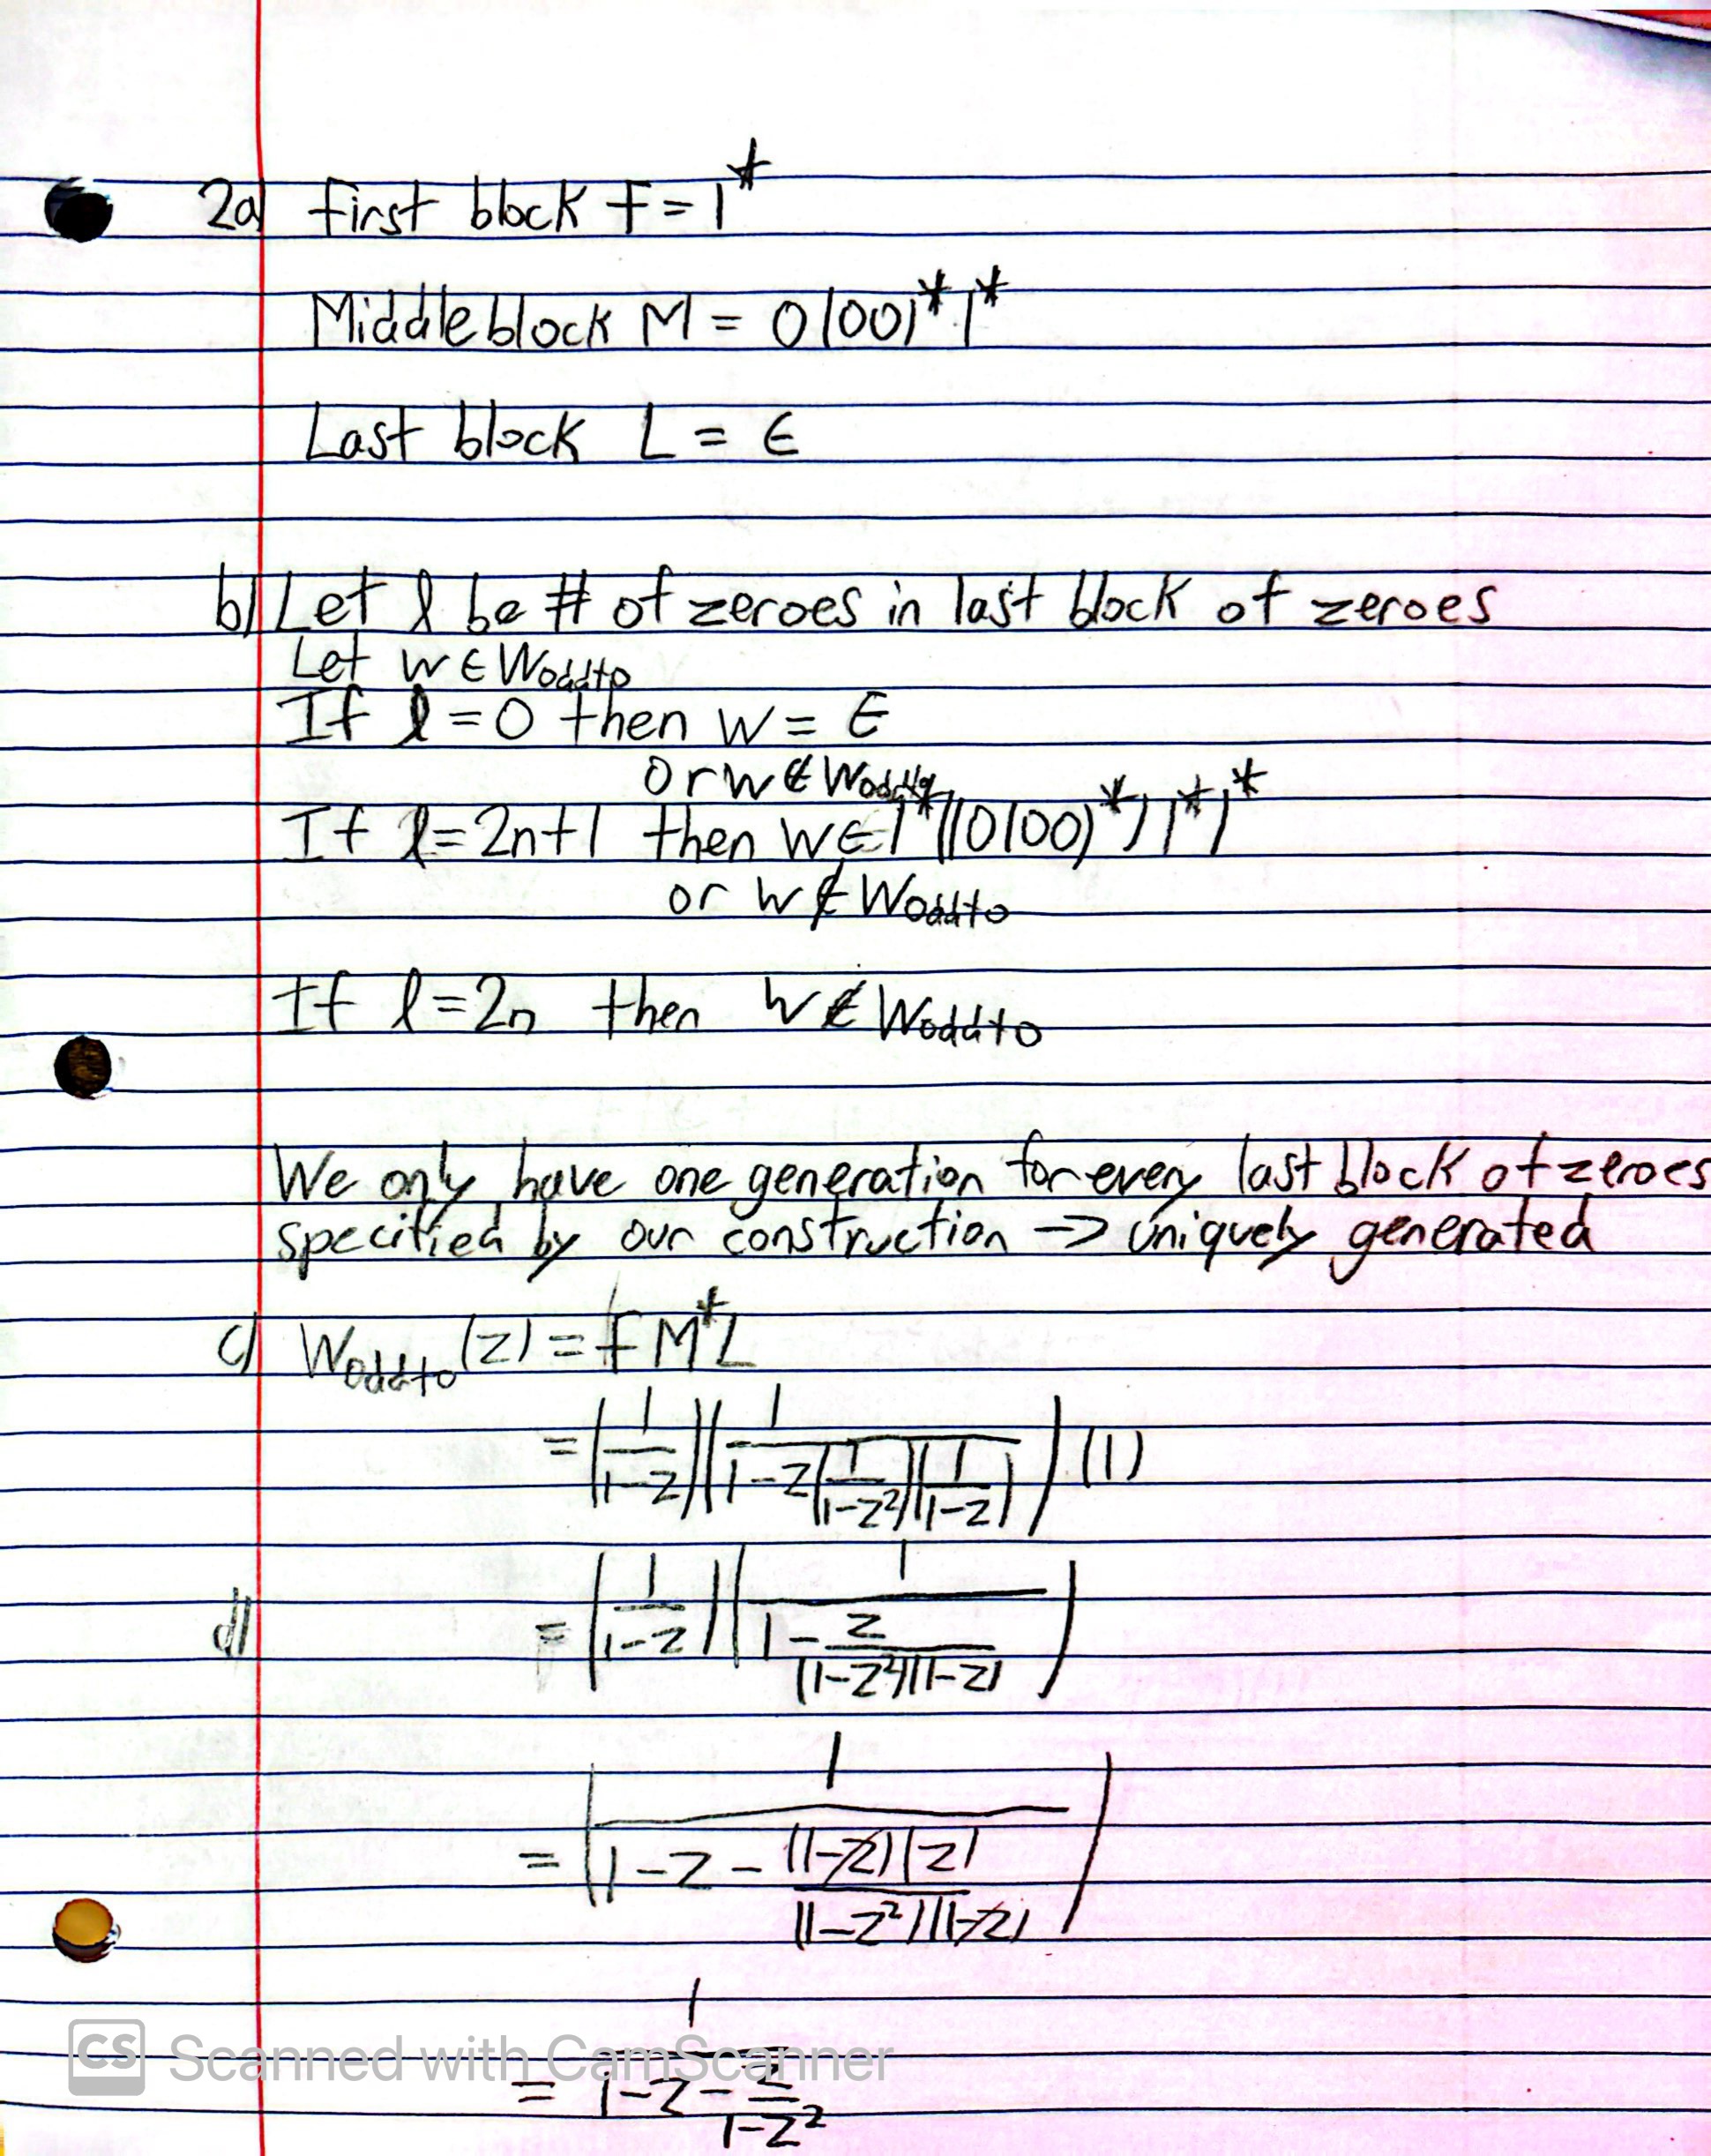 2a) First block F = 1*
Middle block M = 0(00)* 1*
Last block L = ε
b) Let l be # of zeroes in last block of zeroes
Let w ∈ Woddto
If l = 0 then w = ε
or w ∉ Woddto
If l = 2n+1 then w ∈ 1*((0(00)*) 1*)*
or w ∉ Woddto
If l = 2n then w ∉ Woddto
We only have one generation for every last block of zeroes
specified by our construction → uniquely generated
c) Woddto(z) = F M* L
= (1/(1-z)) (1/(1-z(1/(1-z²))(1/(1-z)))) (1)
d) = (1/(1-z)) (1/(1 - z/((1-z²)(1-z))))
= (1/(1-z - ((1-z)(z))/((1-z²)(1-z))))
= 1/(1-z - z/(1-z²))
CS Scanned with CamScanner